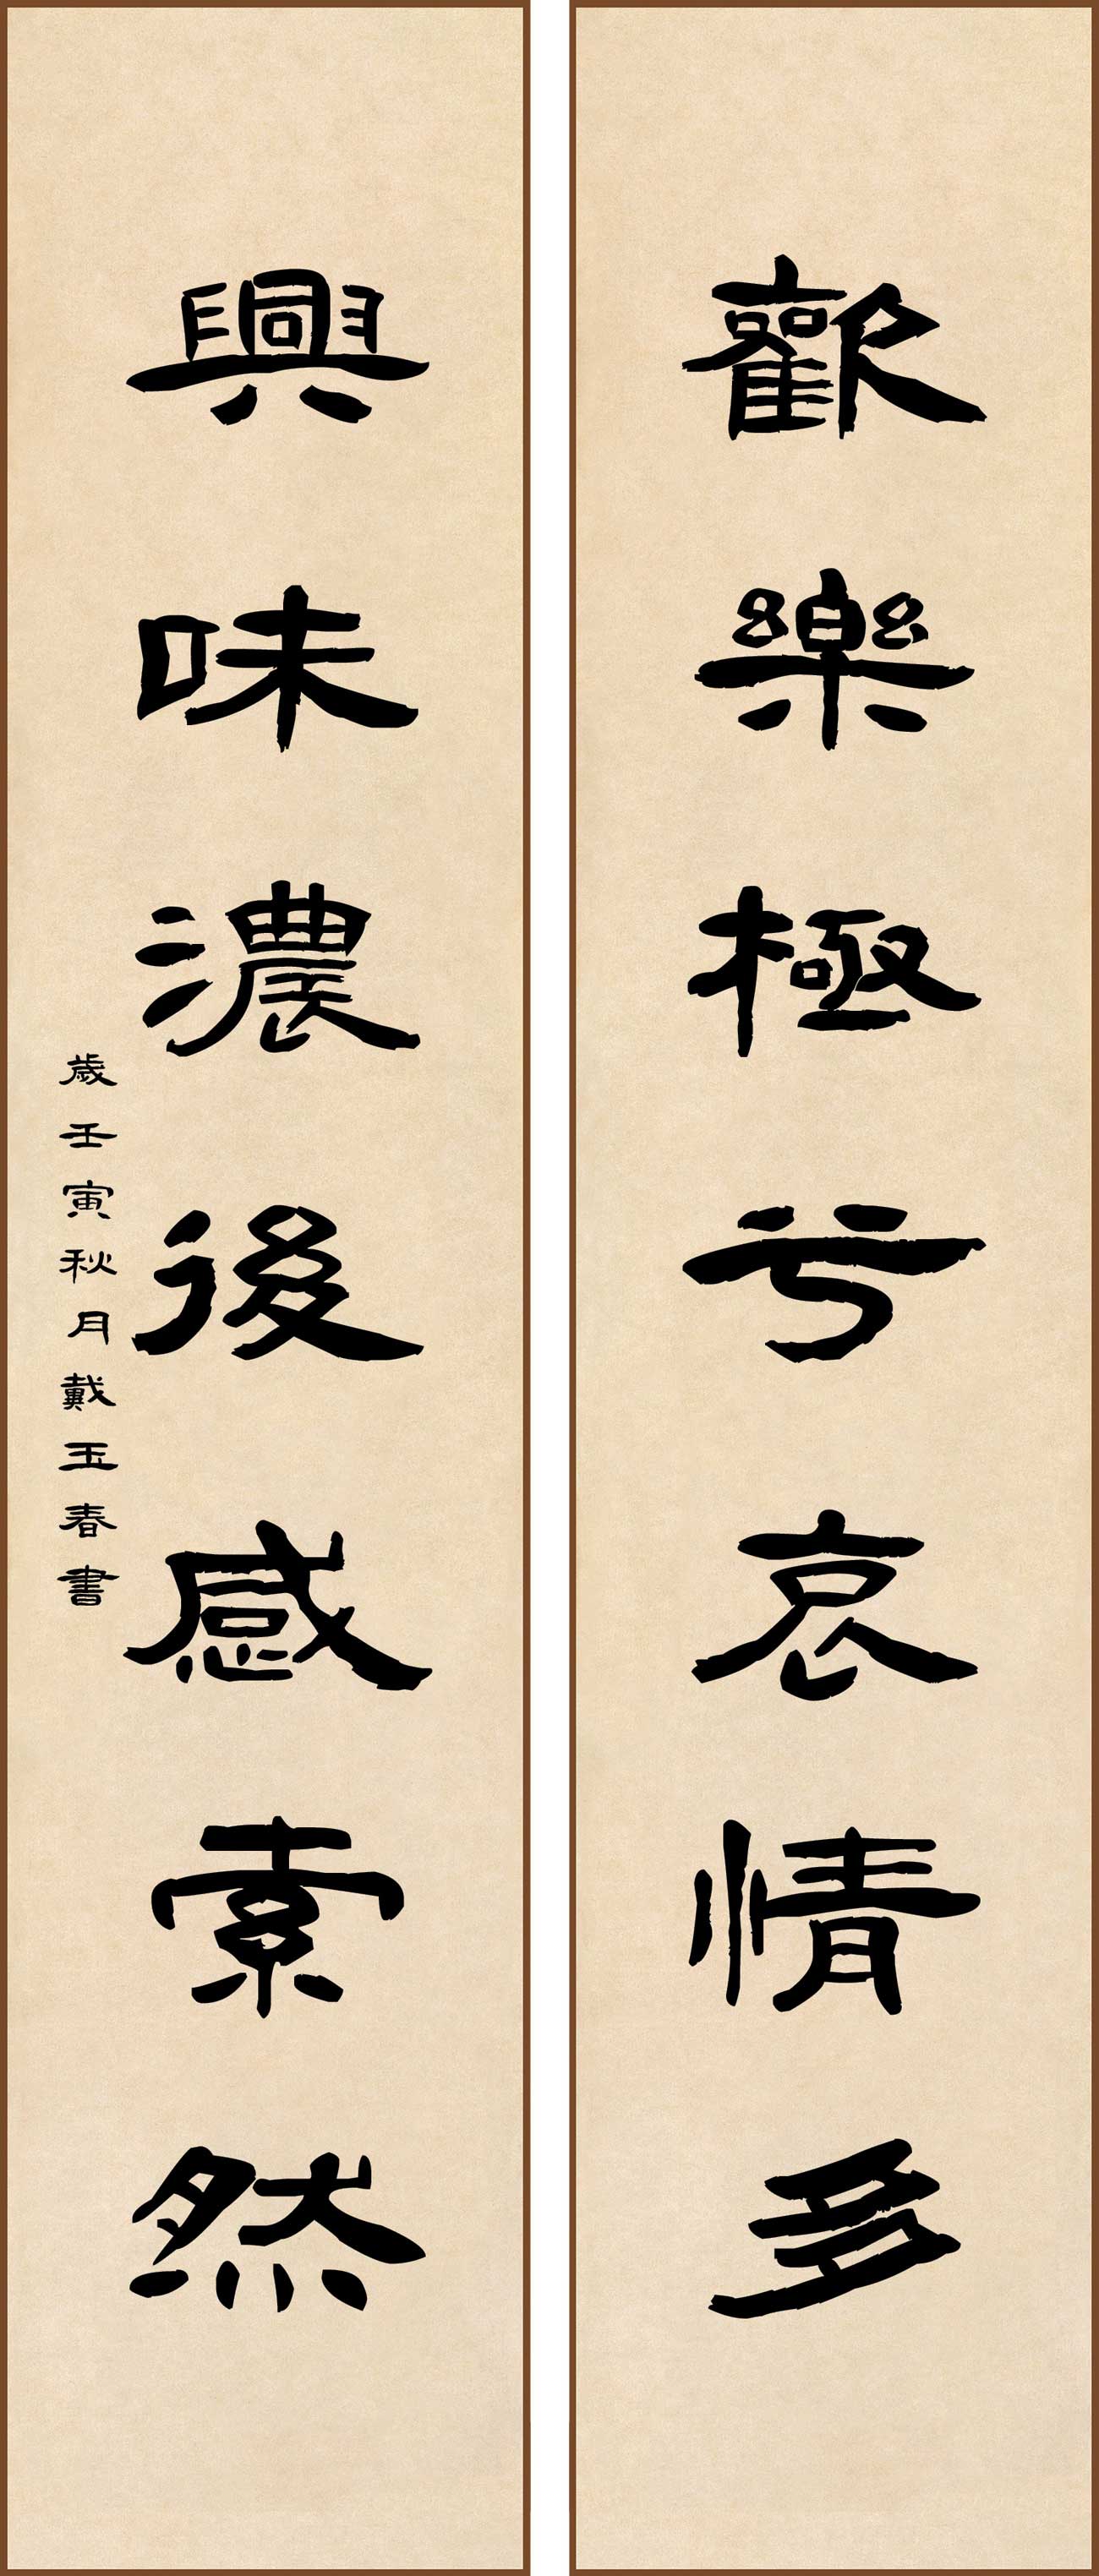 歡樂極兮哀情多
興味濃後感索然
歲壬寅秋月戴玉春書